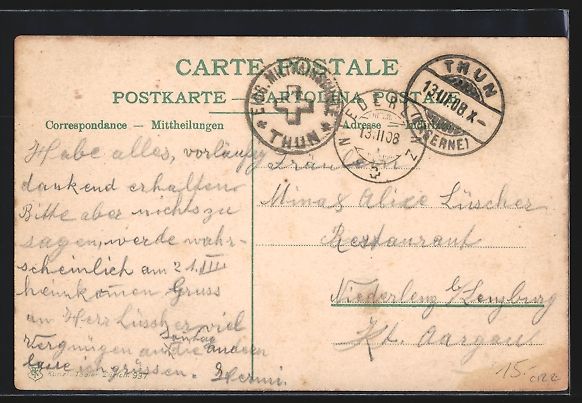 CARTE POSTALE
POSTKARTE — CARTOLINA POSTALE
Correspondance — Mittheilungen
Adresse
THUN
THUN
13.II.08.X-
NIEDERLENZ
13.II.08
Habe alles, vorläufig
dankend erhalten
Bitte aber nichts zu
sagen, werde wahr-
scheinlich am 21. III
heimkommen Gruss
an Herr Lüscher viel
Vergnügen auf
Sontag
die anderen
grüssen. Hermi.
Fräulein
Alixe Lüscher
Restaurant
Niederlenz b/ Lenzburg
Kt. Aargau
15.-